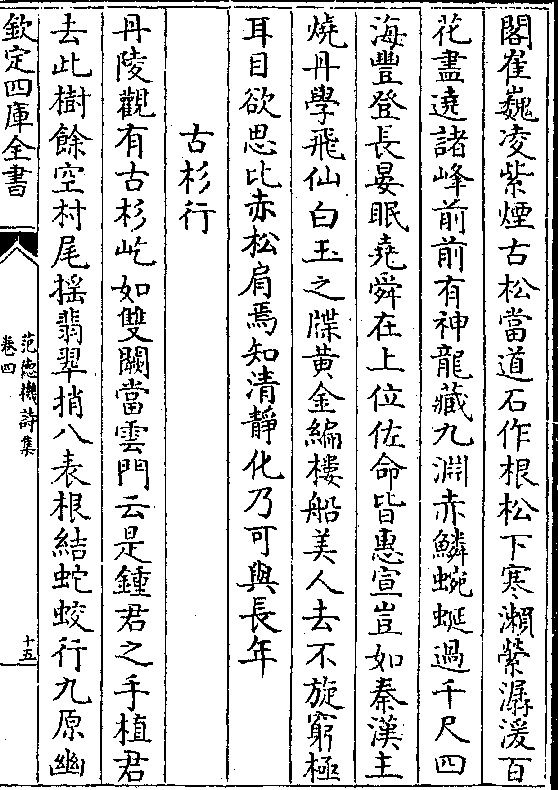 閣崔巍凌紫煙古松當道石作根松下寒瀨縈潺湲百
花盡遶諸峰前前有神龍藏九淵赤鱗蜿蜒過千尺四
海豐登長晏眠堯舜在上位佐命皆惠宣豈如秦漢主
燒丹學飛仙白玉之牒黃金編樓船美人去不旋窮極
耳目欲思比赤松肩焉知清靜化乃可與長年
古杉行
丹陵觀有古杉屹如雙闕當雲門云是鍾君之手植君
去此樹餘空村尾揺翡翠捎八表根結蛇蛟行九原幽
欽定四庫全書
范德機詩集
卷四
十五